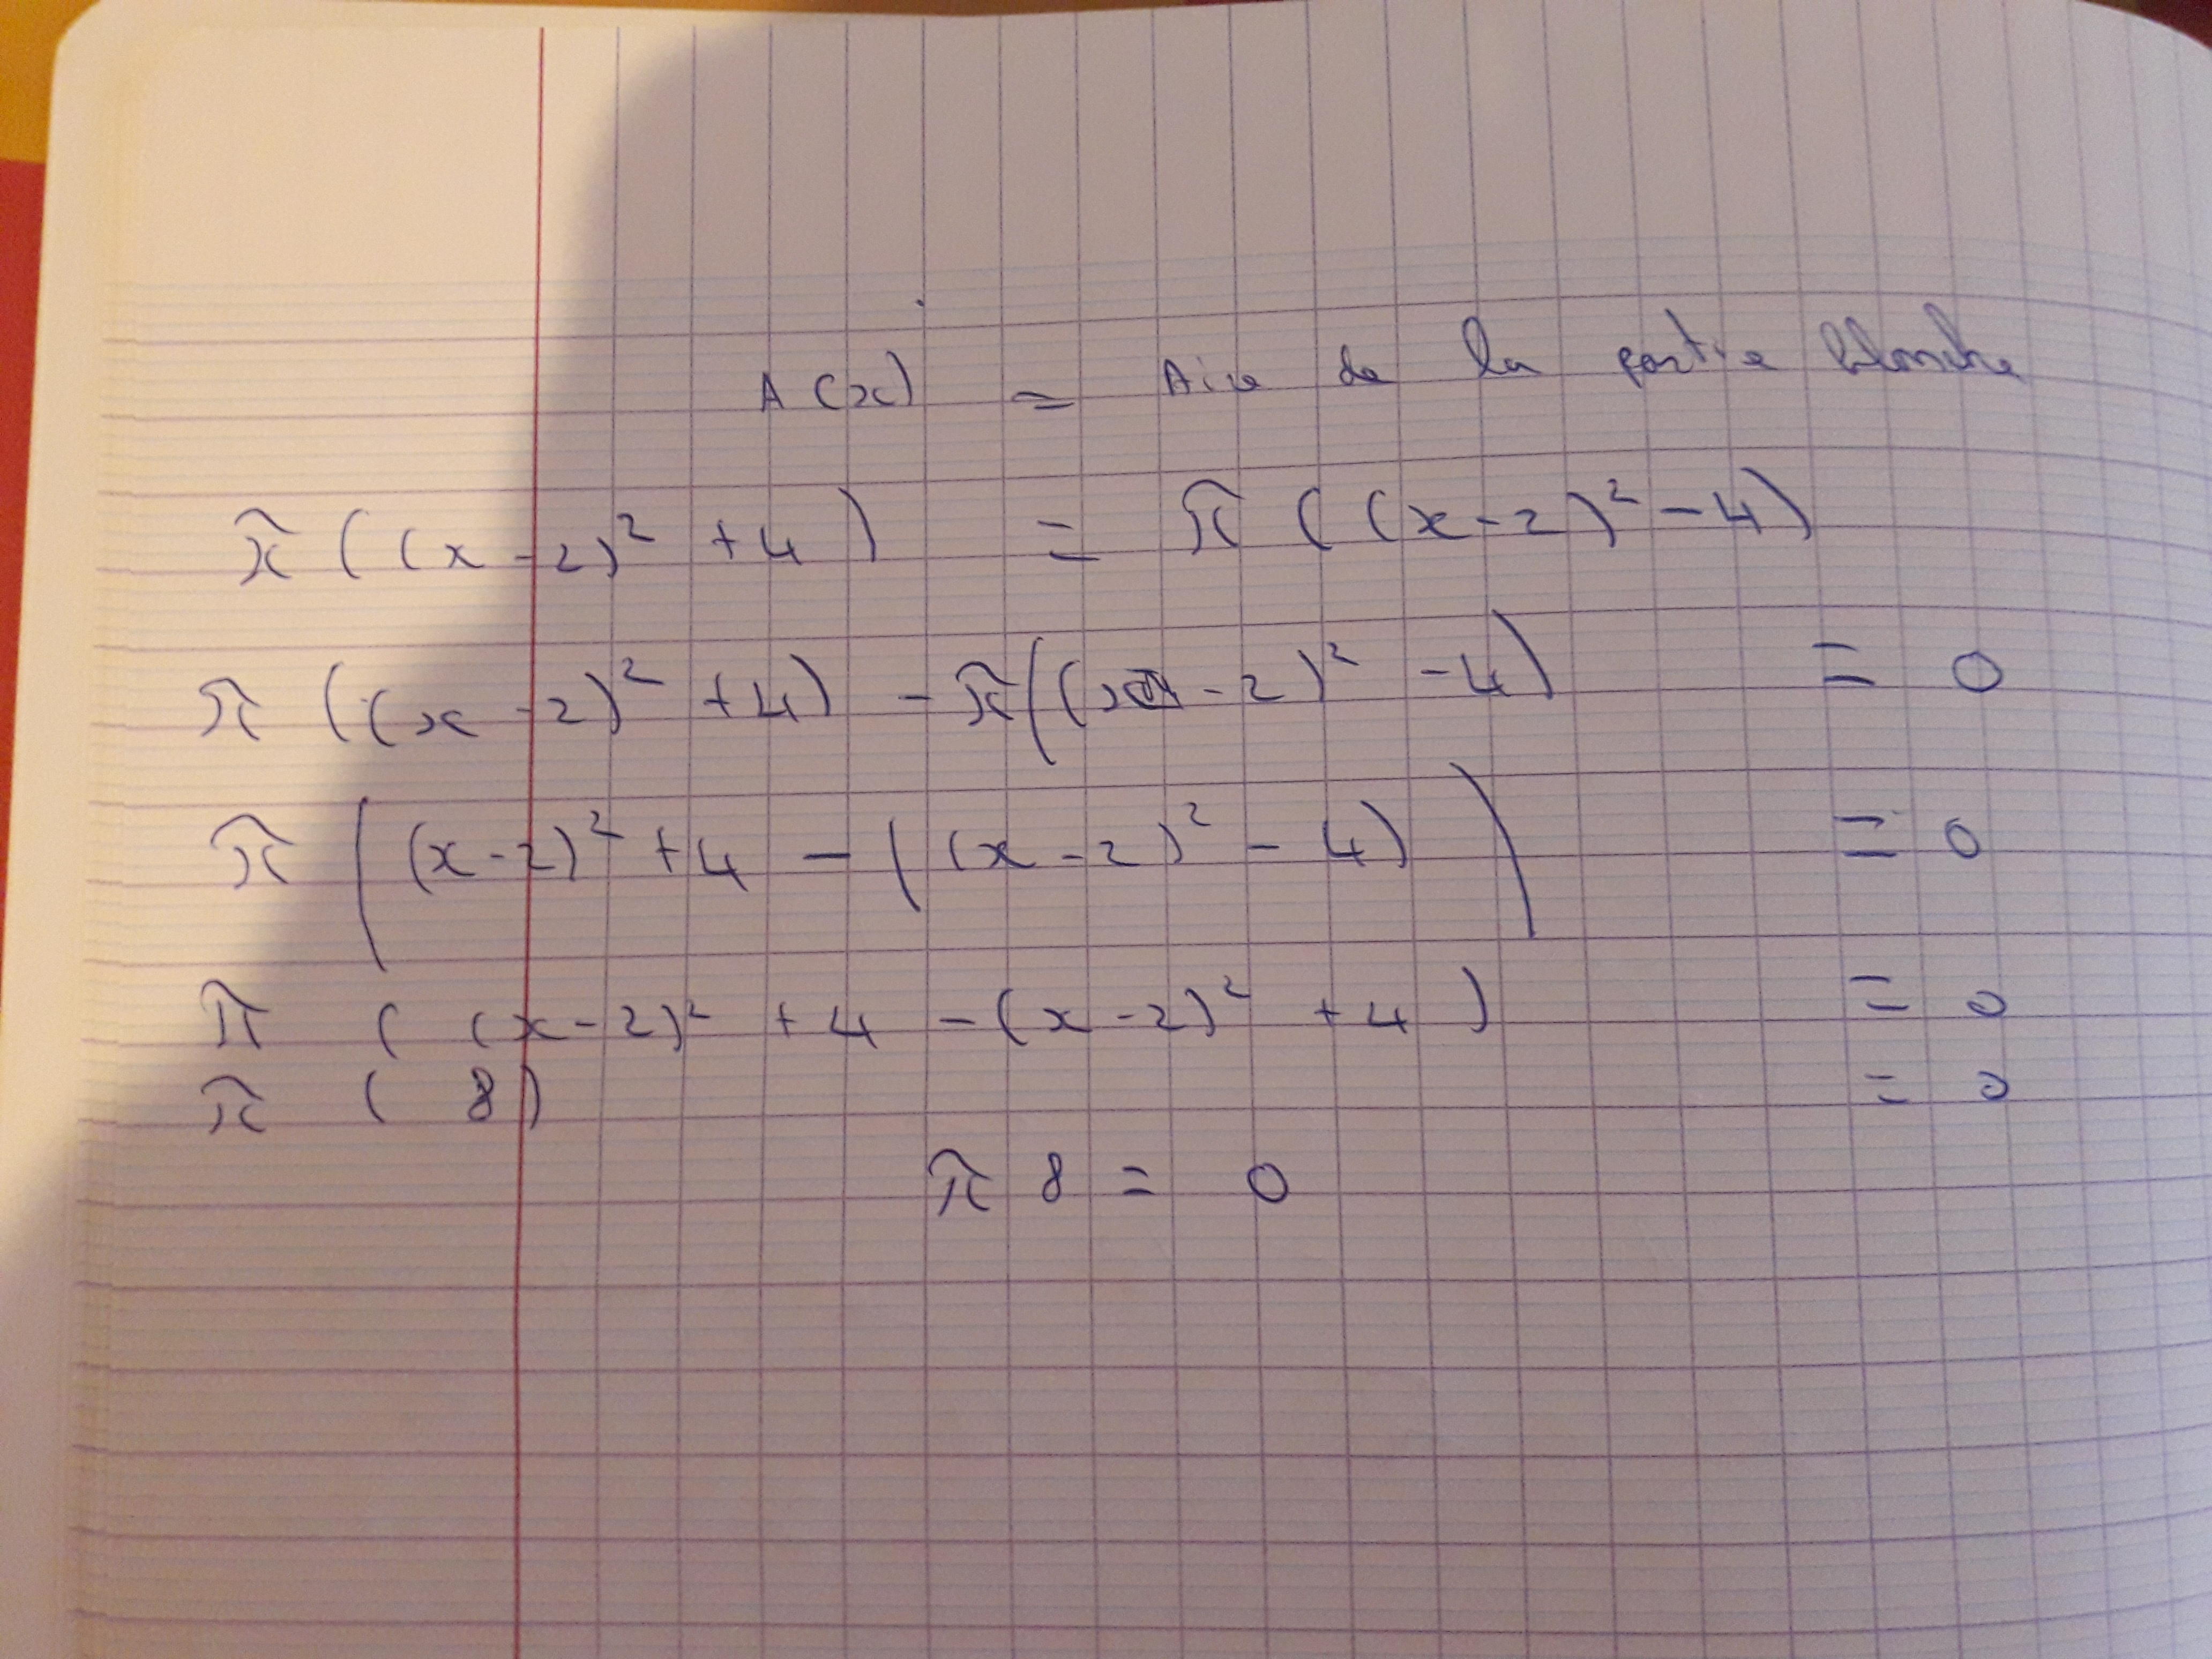 A(x) = Aire de la partie blanche
π((x-2)² +4) = π((x-2)²-4)
π((x-2)² +4) - π((x-2)² -4) = 0
π((x-2)² +4 - ((x-2)² - 4)) = 0
π((x-2)² +4 -(x-2)² +4) = 0
π(8) = 0
π 8 = 0